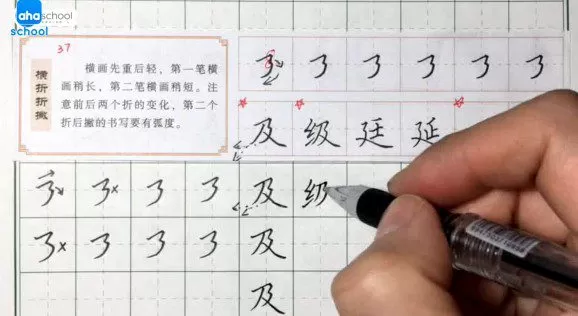 ahaschool
school
37
横折折撇
横画先重后轻，第一笔横
画稍长，第二笔横画稍短。注
意前后两个折的变化，第二个
折后撇的书写要有弧度。
及 级 廷 延
及 级
及
及